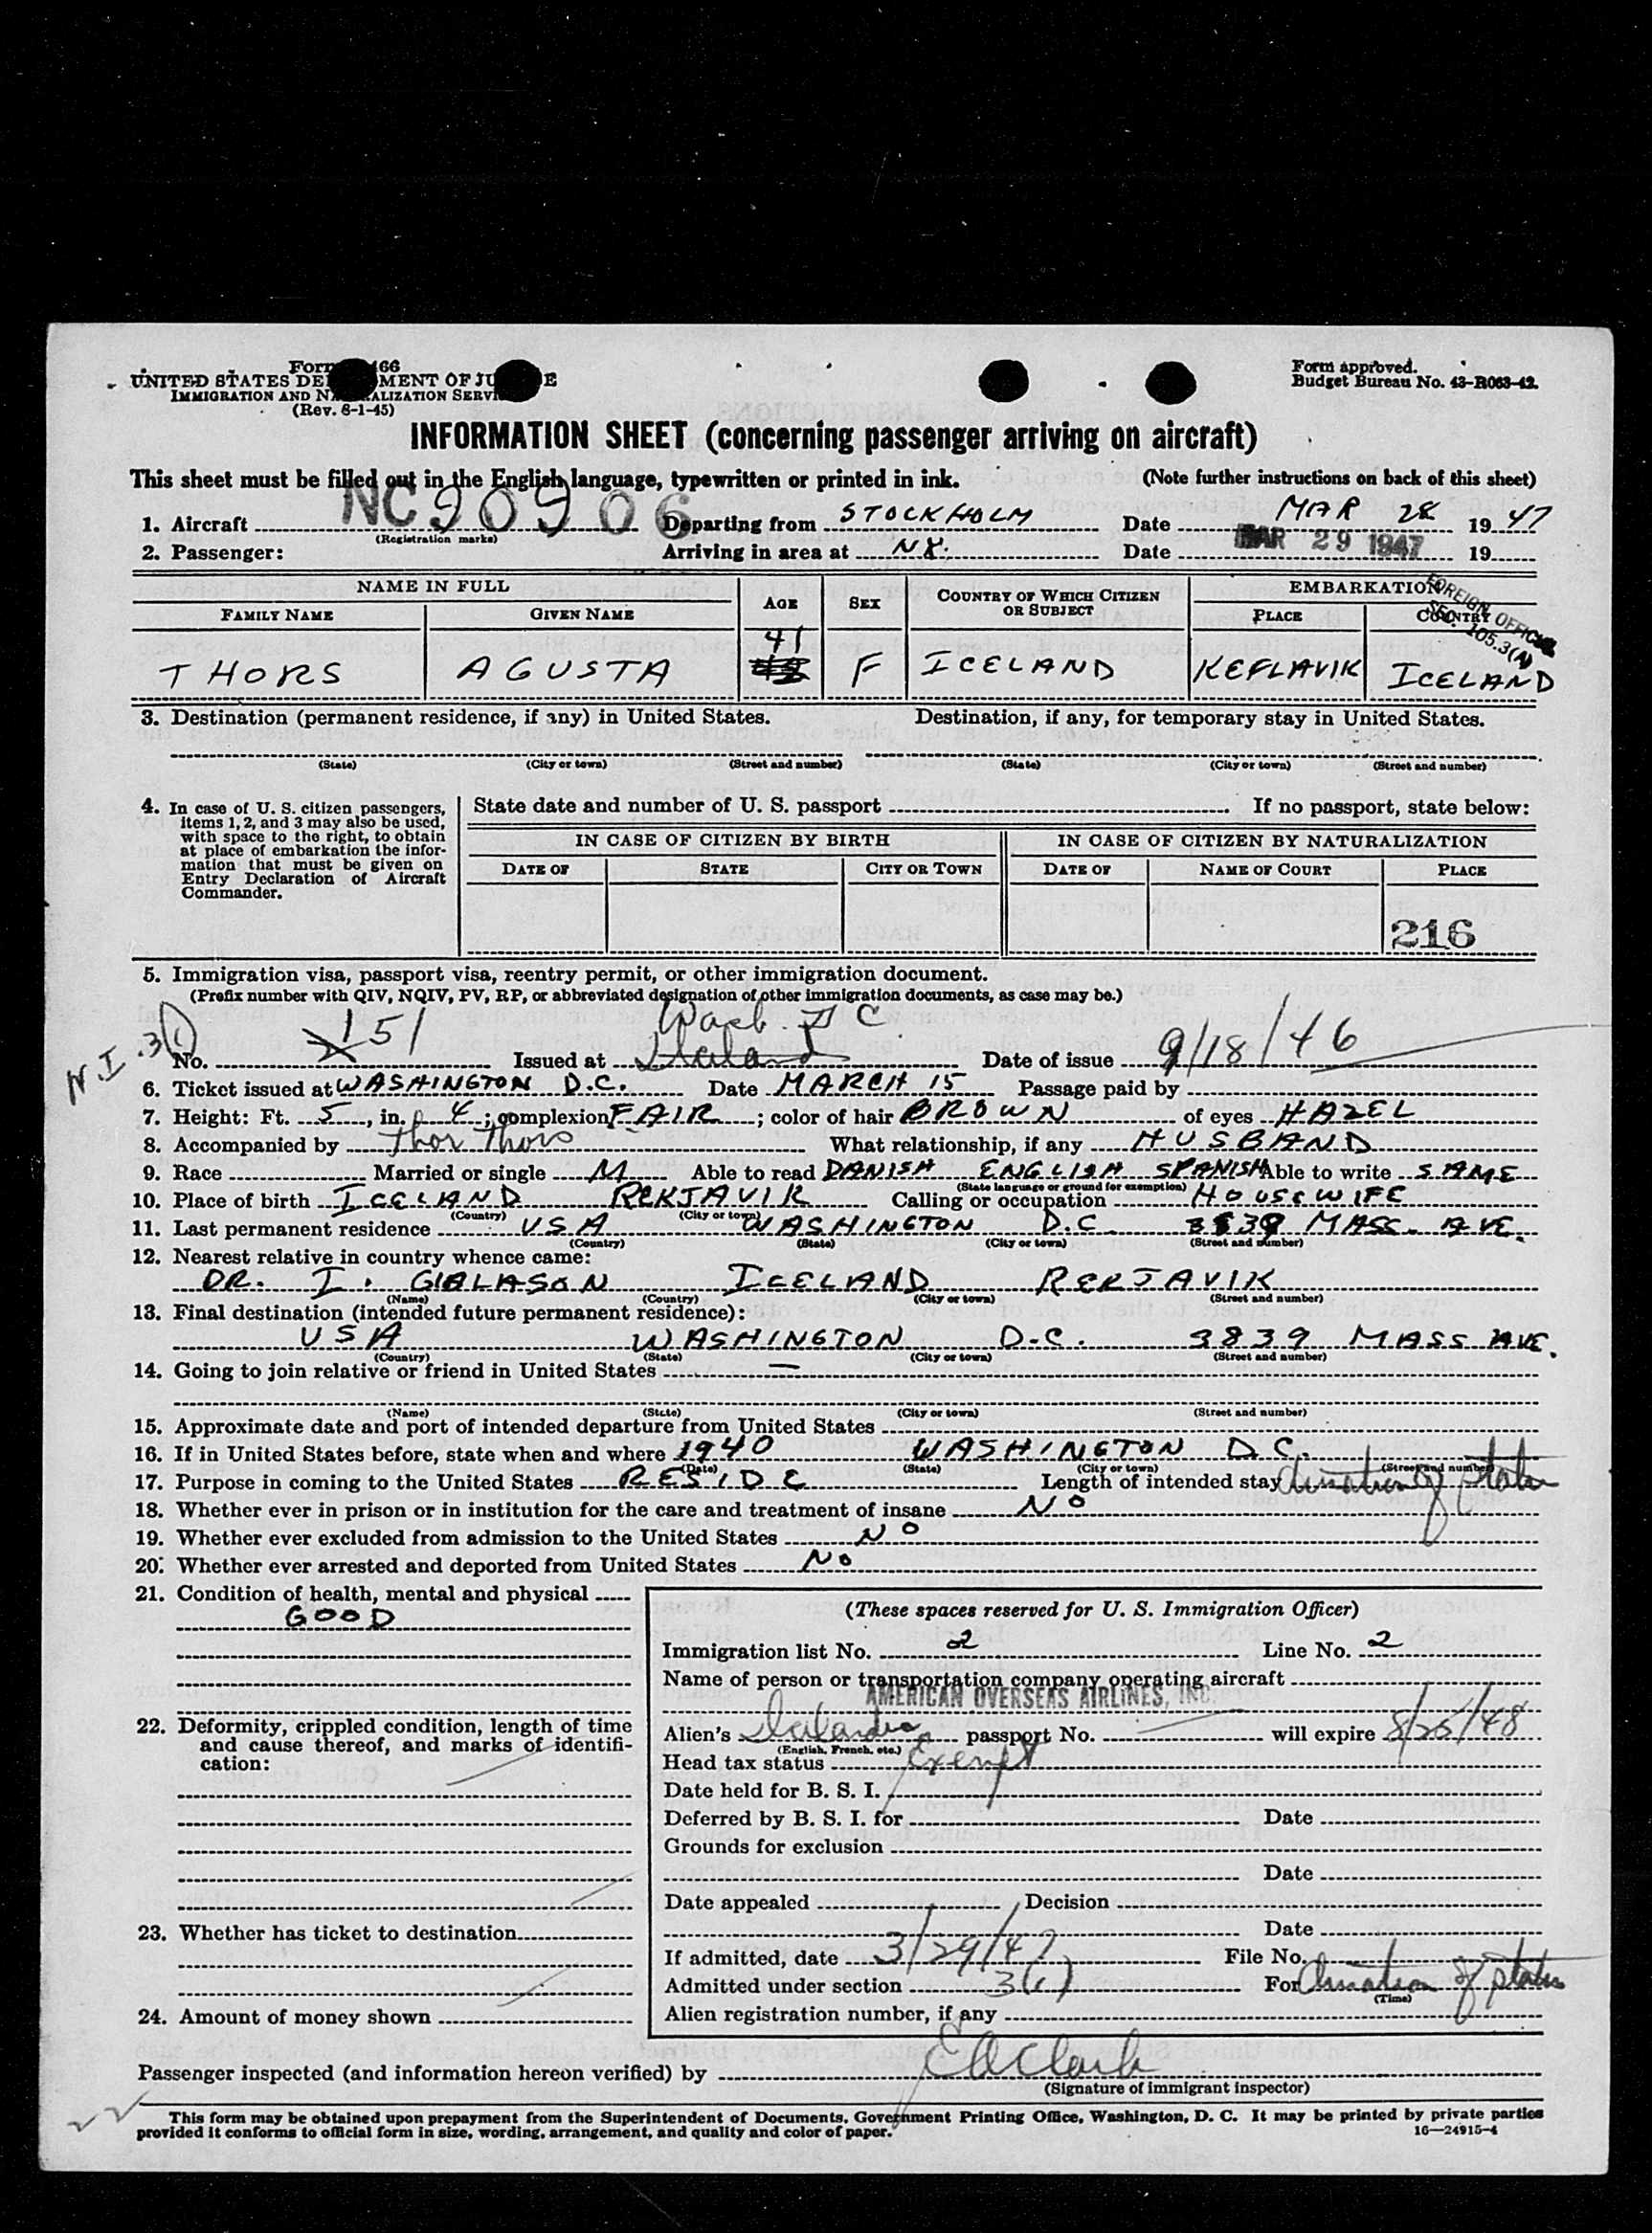 Form 466
UNITED STATES DEPARTMENT OF JUSTICE
IMMIGRATION AND NATURALIZATION SERVICE
(Rev. 8-1-45)
Form approved.
Budget Bureau No. 43-R063-42.
INFORMATION SHEET (concerning passenger arriving on aircraft)
This sheet must be filled out in the English language, typewritten or printed in ink. (Note further instructions on back of this sheet)
1. Aircraft NC 90906 Departing from STOCKHOLM Date MAR 28 1947
(Registration marks)
2. Passenger: Arriving in area at N.Y. Date MAR 29 1947 19
NAME IN FULL AGE SEX COUNTRY OF WHICH CITIZEN OR SUBJECT EMBARKATION
FAMILY NAME GIVEN NAME PLACE COUNTRY
FOREIGN OFFICIAL
SEC. 105.3(A)
41
THORS AGUSTA F ICELAND KEFLAVIK ICELAND
3. Destination (permanent residence, if any) in United States. Destination, if any, for temporary stay in United States.
(State) (City or town) (Street and number) (State) (City or town) (Street and number)
4. In case of U. S. citizen passengers, items 1, 2, and 3 may also be used, with space to the right, to obtain at place of embarkation the information that must be given on Entry Declaration of Aircraft Commander.
State date and number of U. S. passport If no passport, state below:
IN CASE OF CITIZEN BY BIRTH IN CASE OF CITIZEN BY NATURALIZATION
DATE OF STATE CITY OR TOWN DATE OF NAME OF COURT PLACE
216
5. Immigration visa, passport visa, reentry permit, or other immigration document.
(Prefix number with QIV, NQIV, PV, RP, or abbreviated designation of other immigration documents, as case may be.)
Wash. D C
N.I. 3(1) No. 151 Issued at Iceland Date of issue 9/18/46
6. Ticket issued at WASHINGTON D.C. Date MARCH 15 Passage paid by
7. Height: Ft. 5, in. 4; complexion FAIR; color of hair BROWN of eyes HAZEL
8. Accompanied by Thor Thors What relationship, if any HUSBAND
9. Race Married or single M Able to read DANISH ENGLISH SPANISH Able to write SAME
(State language or ground for exemption)
10. Place of birth ICELAND REKJAVIK Calling or occupation HOUSEWIFE
(Country) (City or town)
11. Last permanent residence USA WASHINGTON D.C. 3839 MASS. AVE.
(Country) (State) (City or town) (Street and number)
12. Nearest relative in country whence came:
DR. I. GISLASON ICELAND REKJAVIK
(Name) (Country) (City or town) (Street and number)
13. Final destination (intended future permanent residence):
USA WASHINGTON D.C. 3839 MASS AVE.
(Country) (State) (City or town) (Street and number)
14. Going to join relative or friend in United States —
(Name) (State) (City or town) (Street and number)
15. Approximate date and port of intended departure from United States
16. If in United States before, state when and where 1940 WASHINGTON D.C.
(Date) (State) (City or town) (Street and number)
17. Purpose in coming to the United States RESIDE Length of intended stay duration of status
18. Whether ever in prison or in institution for the care and treatment of insane NO
19. Whether ever excluded from admission to the United States NO
20. Whether ever arrested and deported from United States NO
21. Condition of health, mental and physical
GOOD
22. Deformity, crippled condition, length of time and cause thereof, and marks of identification:
23. Whether has ticket to destination
24. Amount of money shown
(These spaces reserved for U. S. Immigration Officer)
Immigration list No. 2 Line No. 2
Name of person or transportation company operating aircraft
AMERICAN OVERSEAS AIRLINES, INC.
Alien's Icelandic passport No. will expire 8/25/48
(English, French, etc.)
Head tax status Exempt
Date held for B. S. I.
Deferred by B. S. I. for Date
Grounds for exclusion
Date
Date appealed Decision
Date
If admitted, date 3/29/47 File No.
Admitted under section 3(1) For duration of status
(Time)
Alien registration number, if any
Passenger inspected (and information hereon verified) by E A Clark
(Signature of immigrant inspector)
This form may be obtained upon prepayment from the Superintendent of Documents, Government Printing Office, Washington, D. C. It may be printed by private parties
provided it conforms to official form in size, wording, arrangement, and quality and color of paper.
16—24915-4